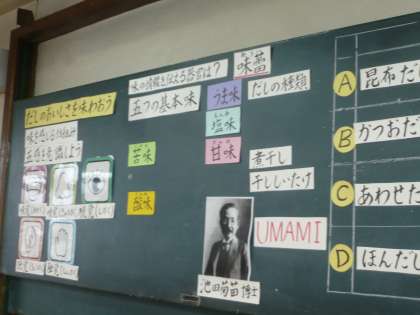 だしのおいしさを味わおう
五感を意識しよう
味の情報を伝える器官は?
味蕾
五つの基本味
うま味
塩味
甘味
苦味
酸味
だしの種類
煮干し
干ししいたけ
UMAMI
池田菊苗博士
A 昆布だ
B かつおだ
C あわせだ
D ほんだし